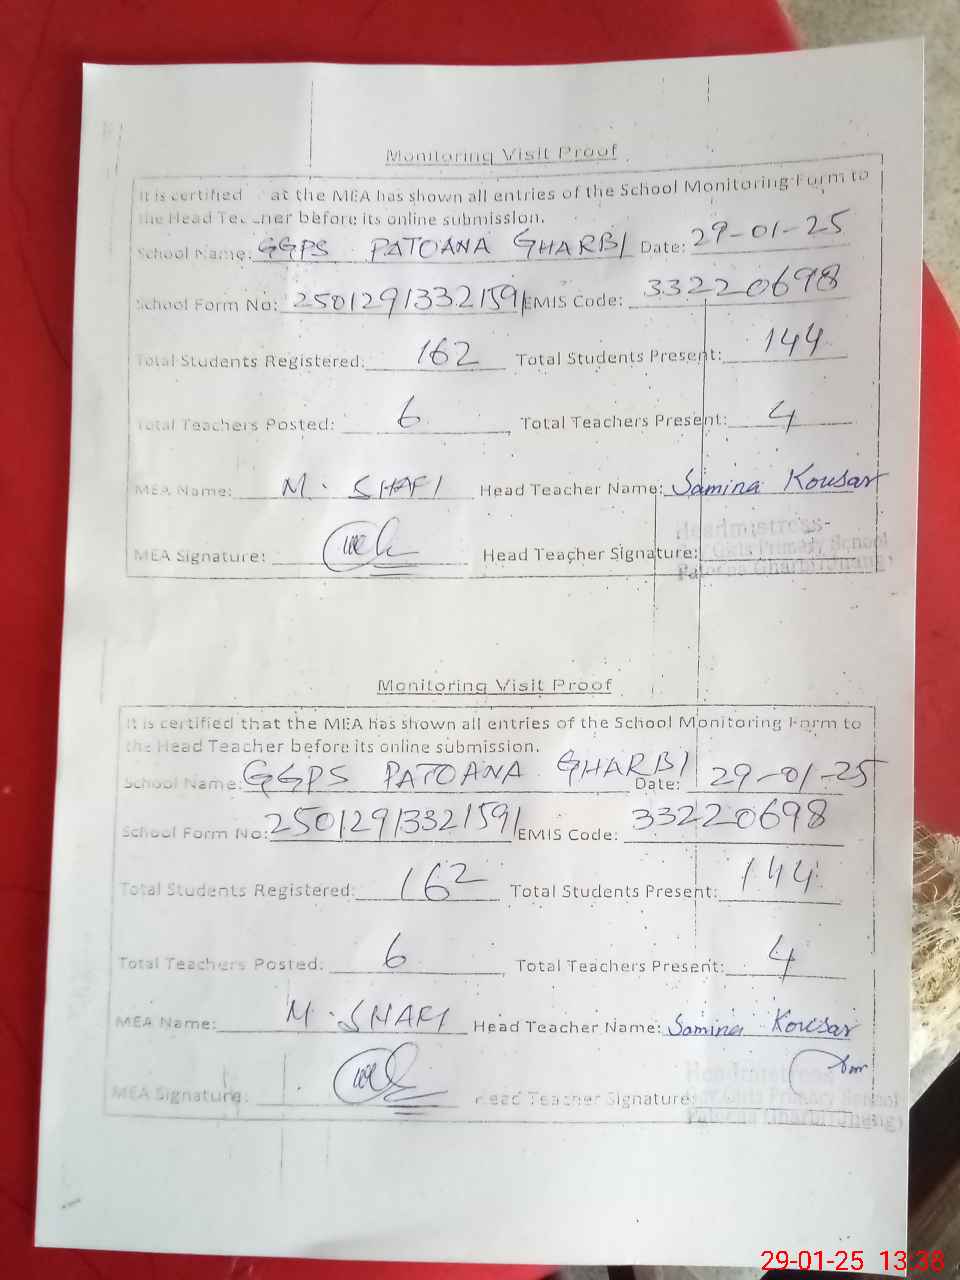 Monitoring Visit Proof
It is certified at the MEA has shown all entries of the School Monitoring Form to
the Head Teacher before its online submission.
School Name: GGPS PATOANA GHARBI Date: 29-01-25
School Form No: 2501291332159 EMIS Code: 33220698
Total Students Registered: 162 Total Students Present: 144
Total Teachers Posted: 6 Total Teachers Present: 4
MEA Name: M. SHAFI Head Teacher Name: Samina Kousar
Headmistress
MEA Signature: Head Teacher Signature: Girls Primary School
Patoana Gharbi (Jhang)
Monitoring Visit Proof
It is certified that the MEA has shown all entries of the School Monitoring Form to
the Head Teacher before its online submission.
School Name: GGPS PATOANA GHARBI Date: 29-01-25
School Form No: 2501291332159 EMIS Code: 33220698
Total Students Registered: 162 Total Students Present: 144
Total Teachers Posted: 6 Total Teachers Present: 4
MEA Name: M. SHAFI Head Teacher Name: Samina Kousar
Headmistress
MEA Signature: Head Teacher Signature: Girls Primary School
Patoana Gharbi (Jhang)
29-01-25 13:38